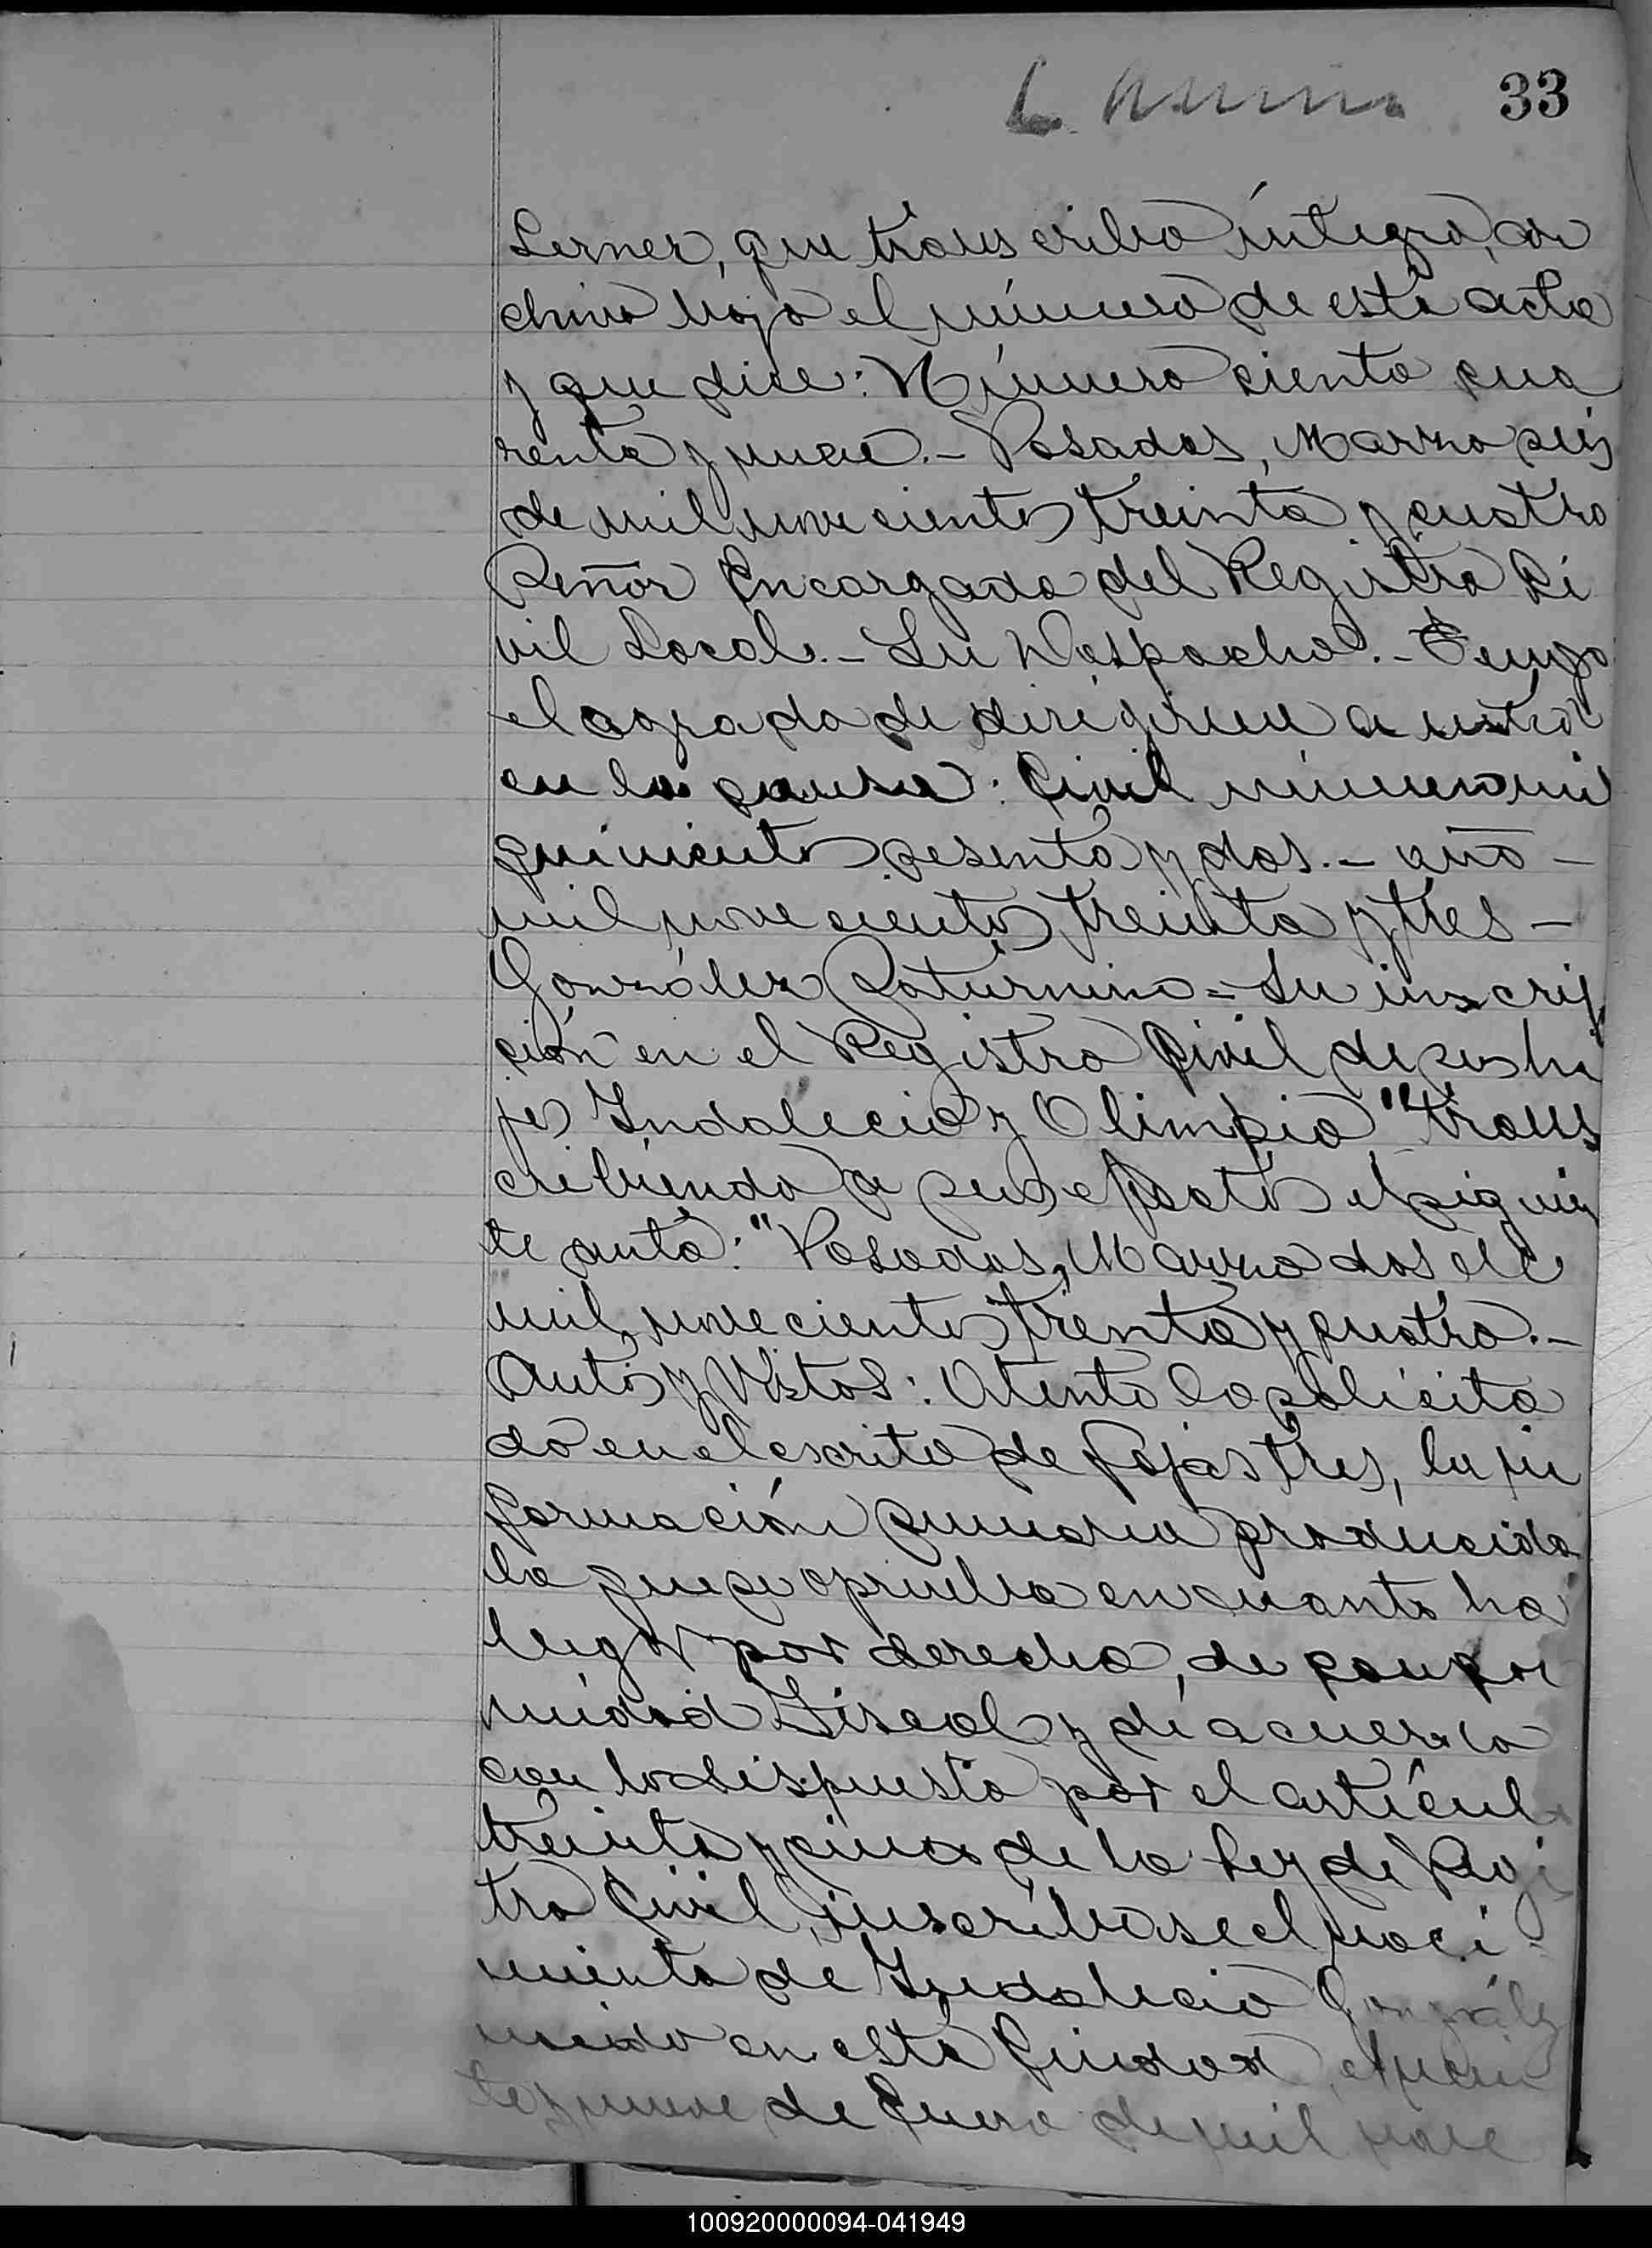 33
Lerner, que transcribo íntegro, ar
chivo bajo el número de esta acta
y que dice: Número ciento cua
renta y nueve.- Posadas, Marzo seis
de mil novecientos treinta y cuatro
Señor Encargado del Registro Ci
vil Local.- Su Despacho.- Tengo
el agrado de dirigirme a usted
en la causa: Civil número mil
quinientos sesenta y dos.- año -
mil novecientos treinta y tres -
González Saturnino = Su inscrip
ción en el Registro Civil de sus hi
jos Indalecio y Olimpio" trans
cribiendo a sus efectos el siguien
te auto: "Posadas, Marzo dos de
mil novecientos treinta y cuatro.-
Autos y Vistos: Atento lo solicita
do en el escrito de fojas tres, la in
formación sumaria producida
la que se aprueba en cuanto ha
lugar por derecho, de confor
midad Fiscal y de acuerdo
con lo dispuesto por el artículo
treinta y cinco de la Ley de Regis
tro Civil, inscríbase el naci-
miento de Indalecio González
nacido en esta Ciudad, el vein
te y nueve de Enero de mil nove
100920000094-041949